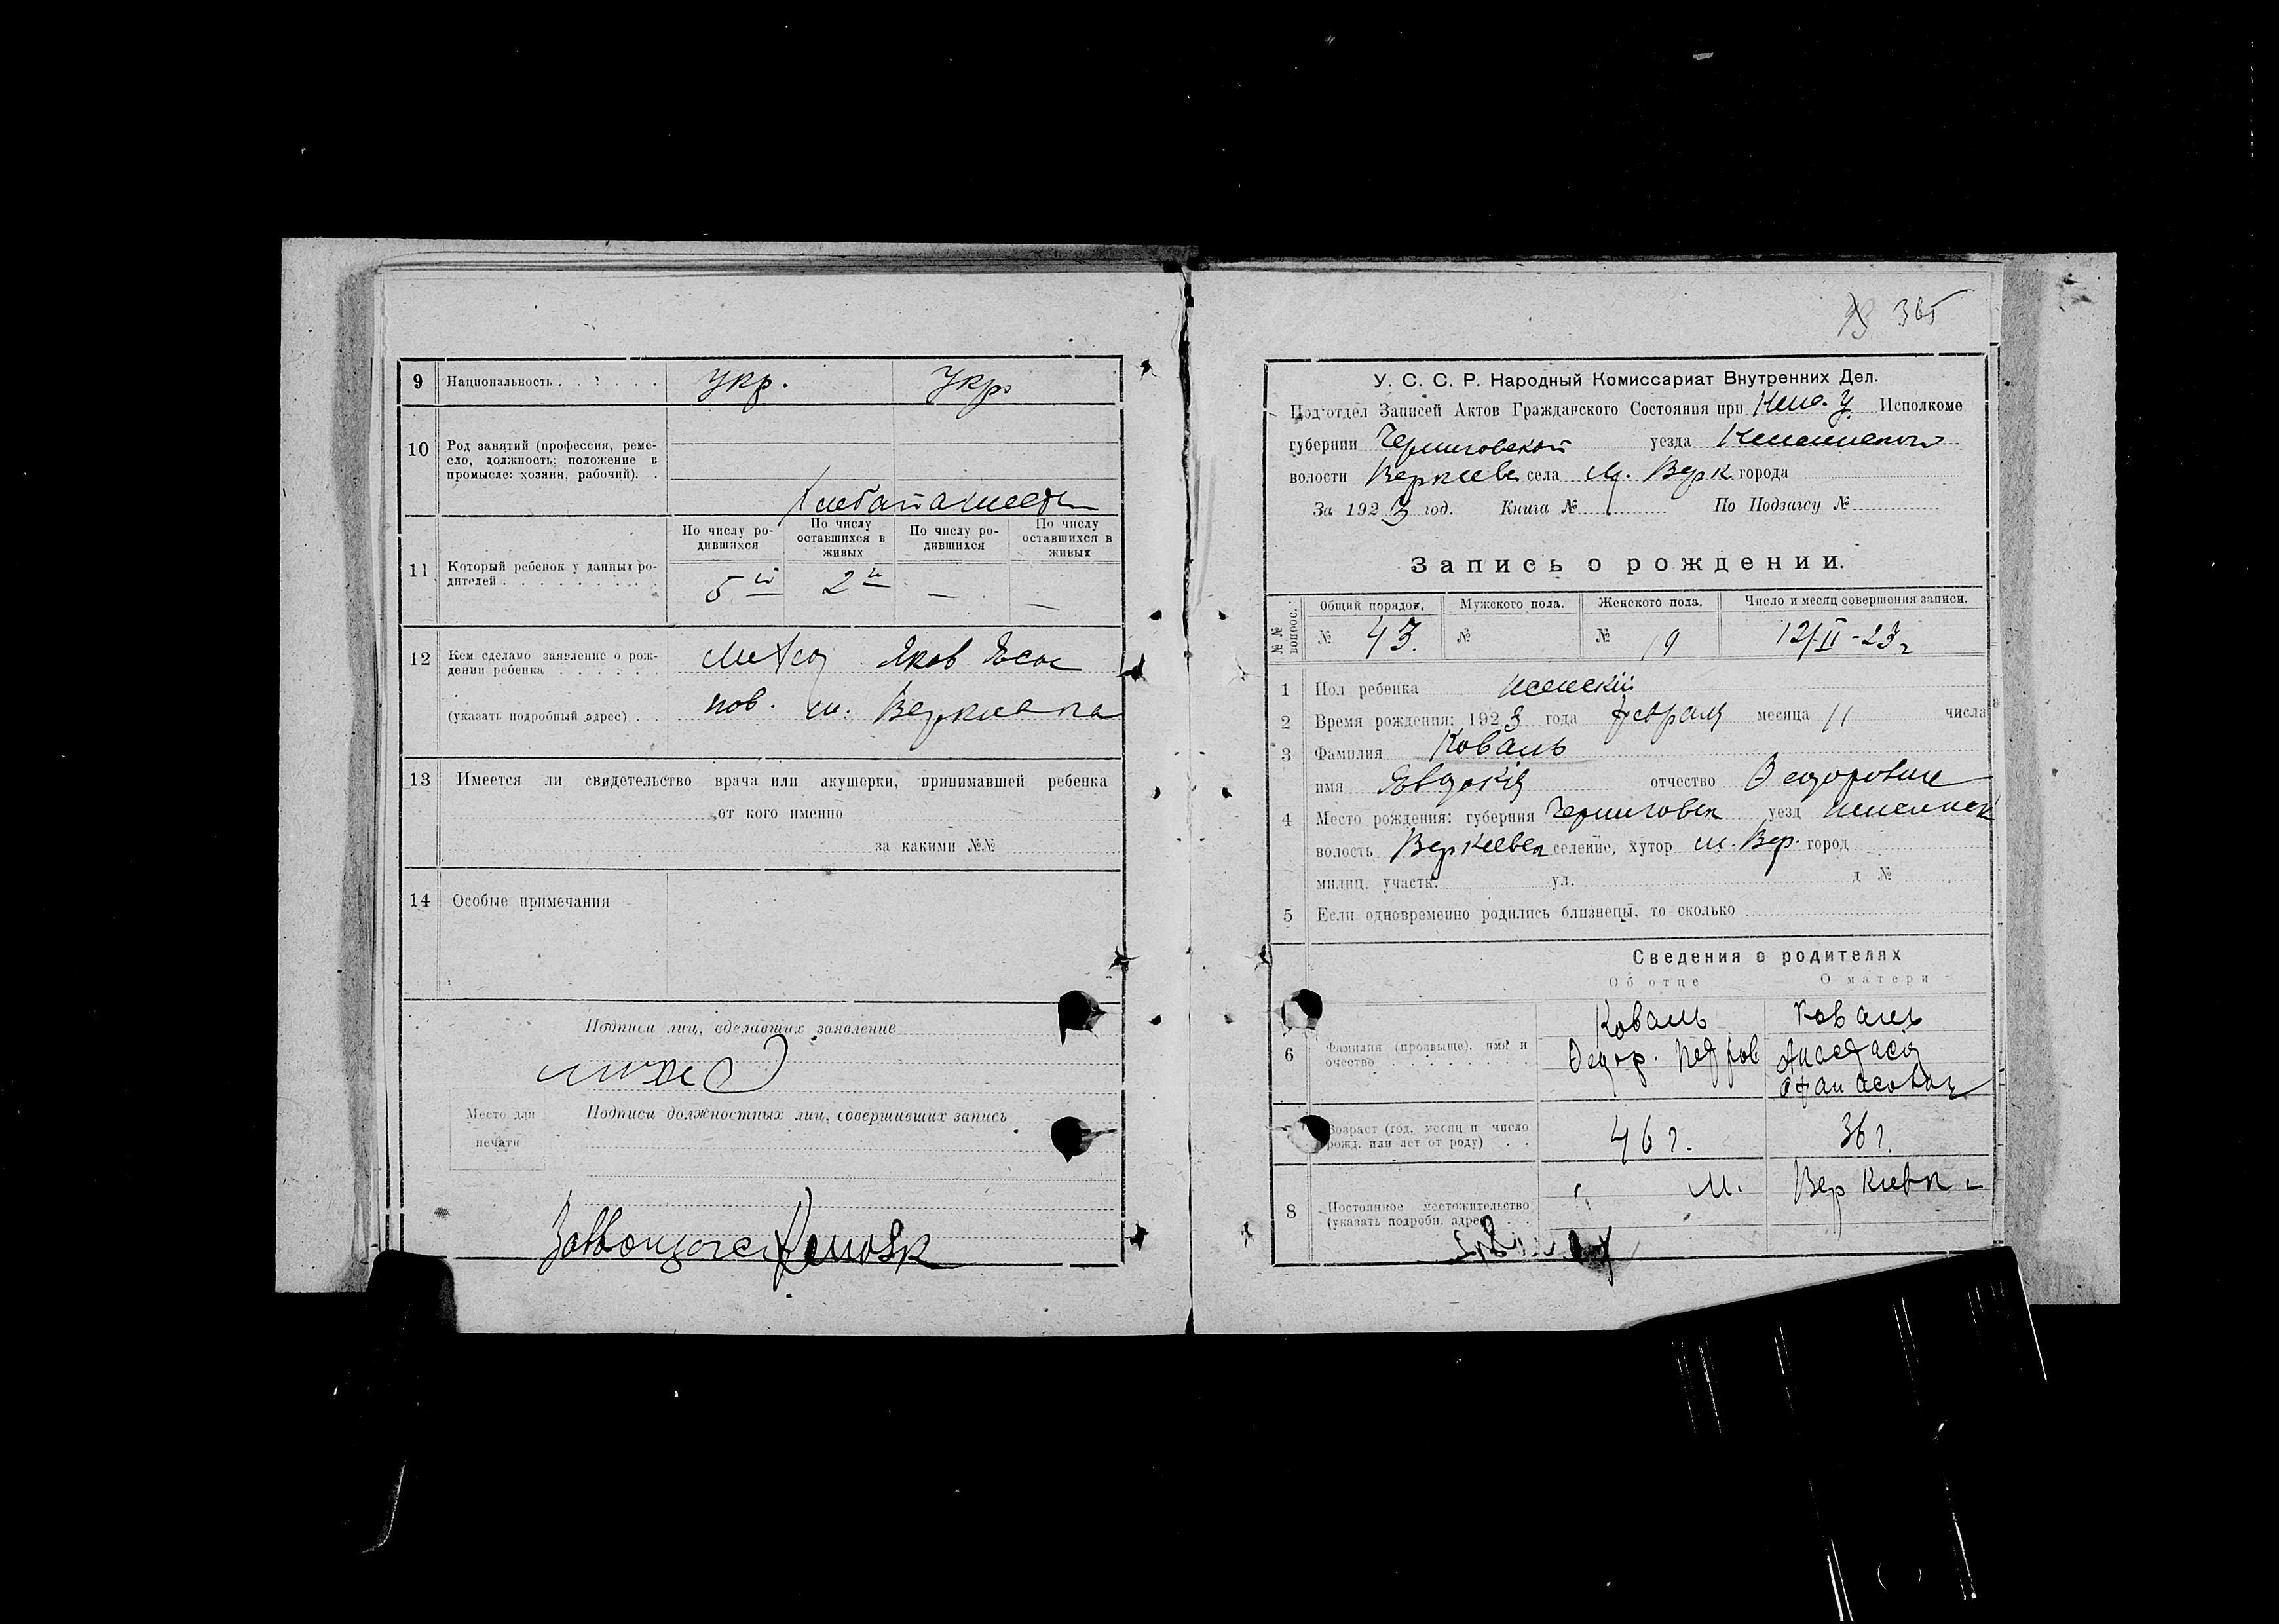 9 Национальность . . . . . . укр. укр.
10 Род занятий (профессия, реме-
сло, должность; положение в
промысле: хозяин, рабочий). .
11 Который ребенок у данных ро-
дителей . . . . . . . . . .
По числу ро-
дившихся
По числу
оставшихся в
живых
По числу ро-
дившихся
По числу
оставшихся в
живых
5й 2й — —
12 Кем сделано заявление о рож-
дении ребенка . . . . . .
(указать подробный адрес) . .
Яков
м.
13 Имеется ли свидетельство врача или акушерки, принимавшей ребенка
от кого именно
за какими №№
14 Особые примечания
Подписи лиц, сделавших заявление
Место для
печати
Подписи должностных лиц, совершивших запись
365
У. С. С. Р. Народный Комиссариат Внутренних Дел.
Под'отдел Записей Актов Гражданского Состояния при Исполкоме
губернии Черниговской уезда
волости села м. Верк города
За 1923 год. Книга № По Подзагсу №
Запись о рождении.
№№ вопрос. Общий порядок. Мужского пола. Женского пола. Число и месяц совершения записи.
№ 43. № № 19 12/II-23г
1 Пол ребенка женскій
2 Время рождения: 1923 года февраля месяца 11 числа
3 Фамилия Коваль
имя Явдокія отчество
4 Место рождения: губерния Черниговск уезд
волость селение, хутор м. Вер. город
милиц. участк. ул. д №
5 Если одновременно родились близнецы, то сколько
Сведения о родителях
Об отце О матери
6 Фамилия (прозвыще), имя и
очество . . . . . . . .
Коваль
Федор. Петров
Коваль
Анастасія
Афанасовна
Возраст (год, месяц и число
рожд. или лет от роду) . .
46 г. 36 г.
8 Постоянное местожительство
(указать подробн. адрес) . .
м.